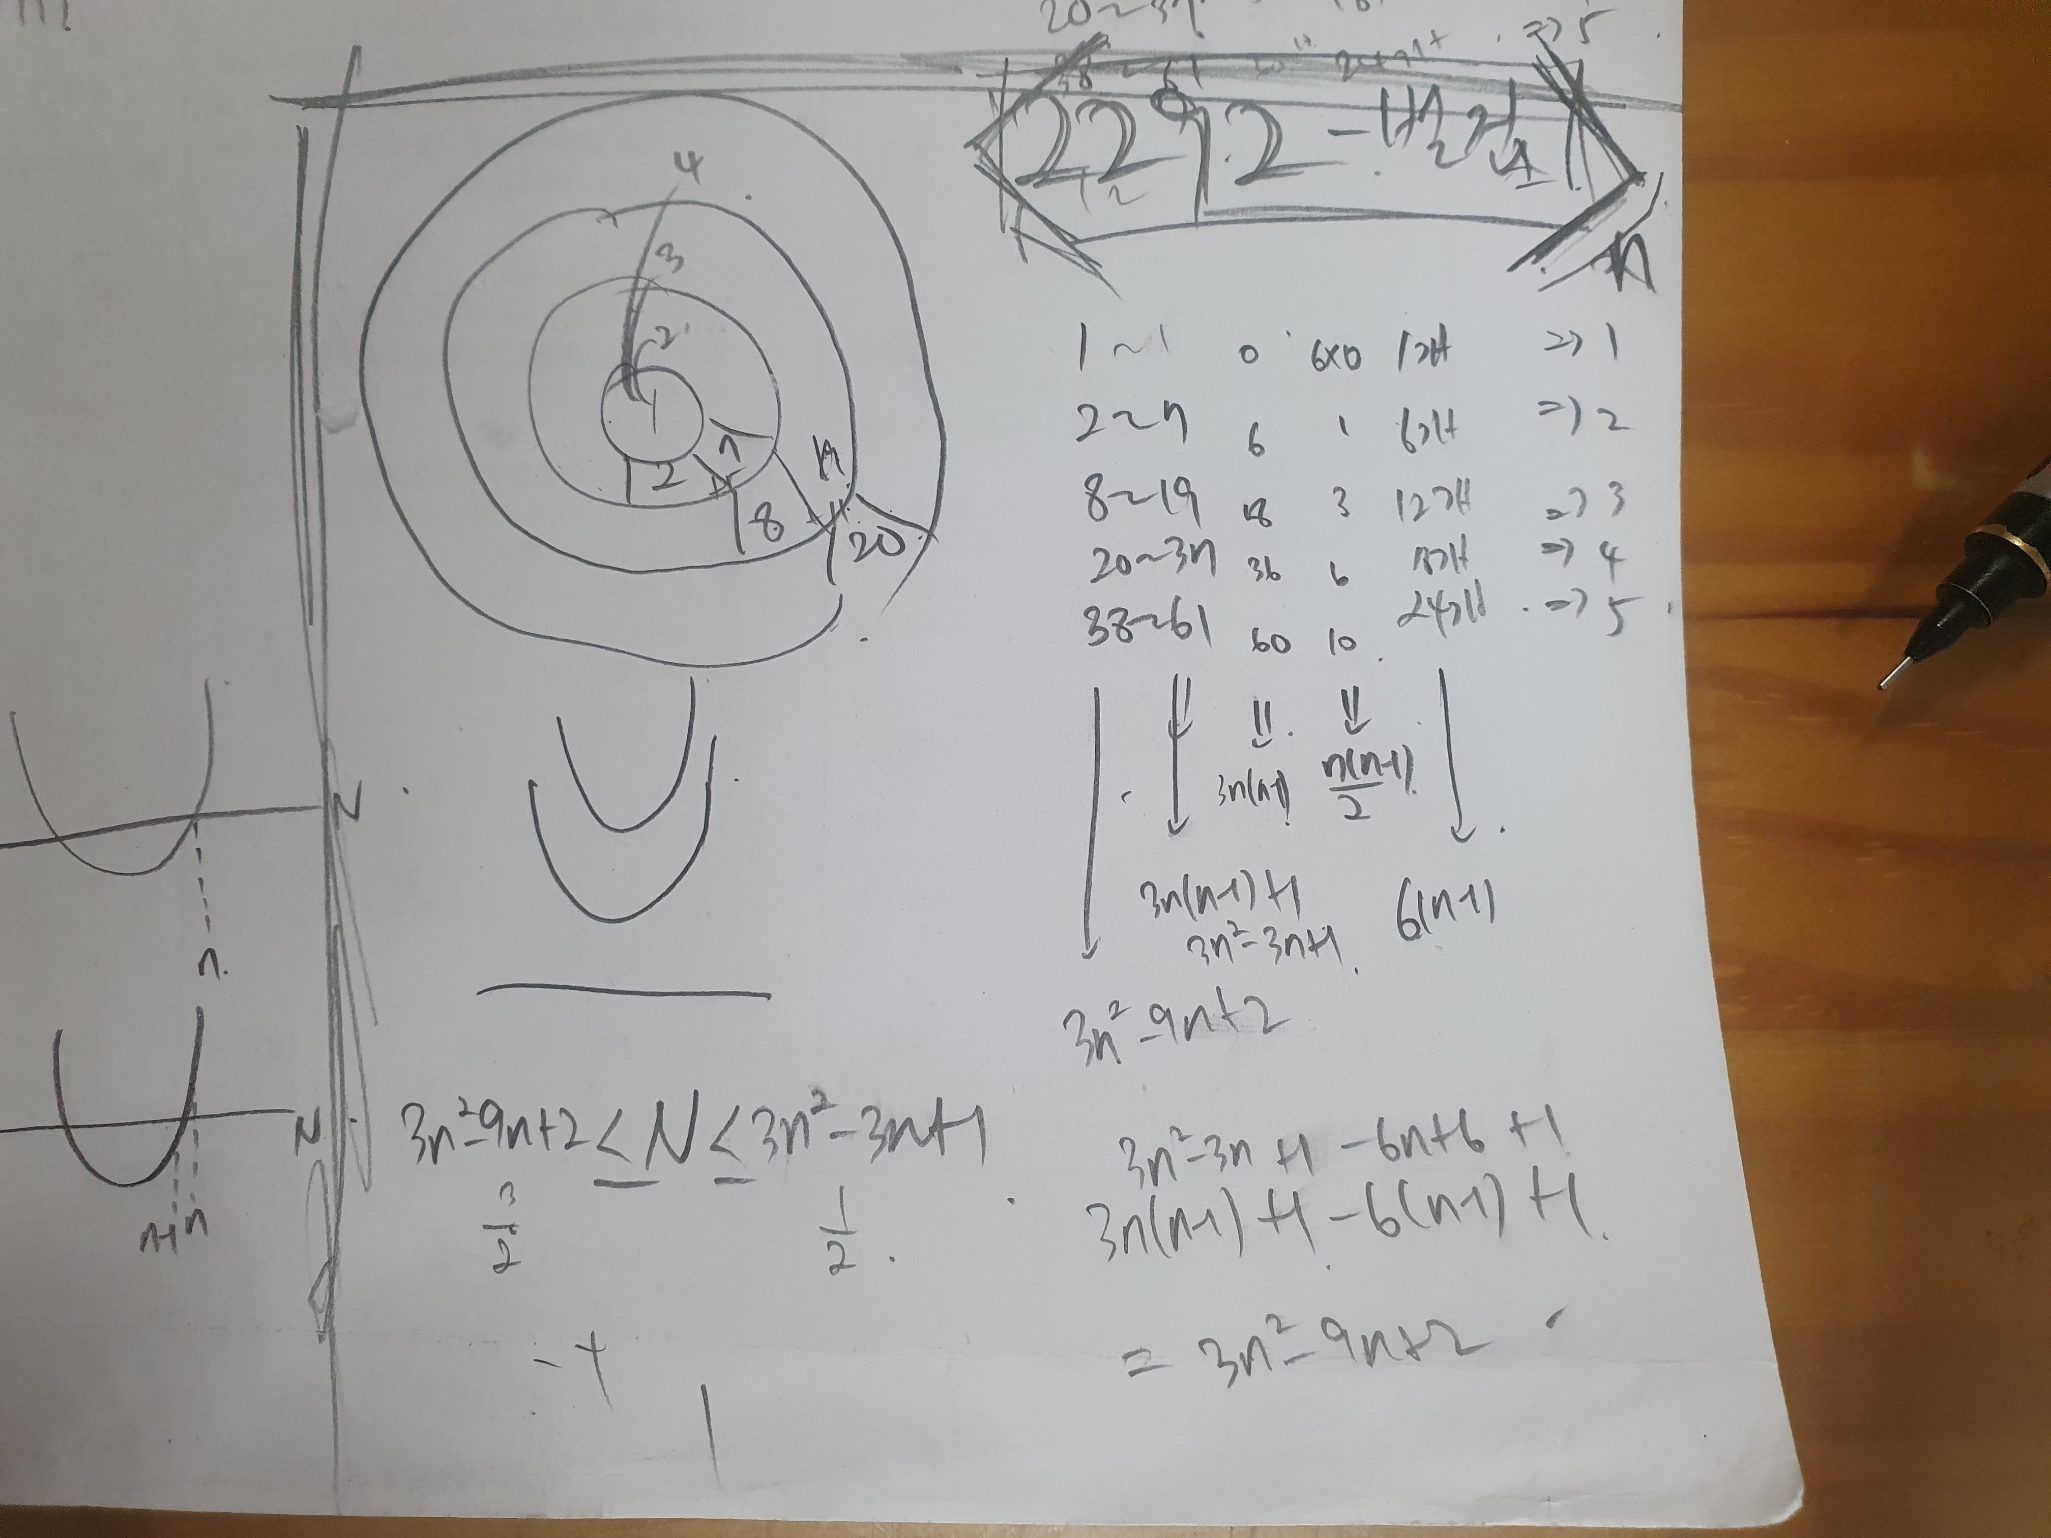 20~37
=> 5
2292-벌집
n
4
3
2
1
2
7
8
19
20
1~1 0 6x0 1개 => 1
2~7 6 1 6개 => 2
8~19 18 3 12개 => 3
20~37 36 6 18개 => 4
38~61 60 10 24개 => 5
3n(n-1) n(n-1)/2
3n(n-1)+1 6(n-1)
3n²-3n+1
3n²-9n+2
N
n
N
n-1 n
3n²-9n+2 ≤ N ≤ 3n²-3n+1
3/2 1/2
3n²-3n+1-6n+6+1
3n(n-1)+1-6(n-1)+1
= 3n²-9n+2